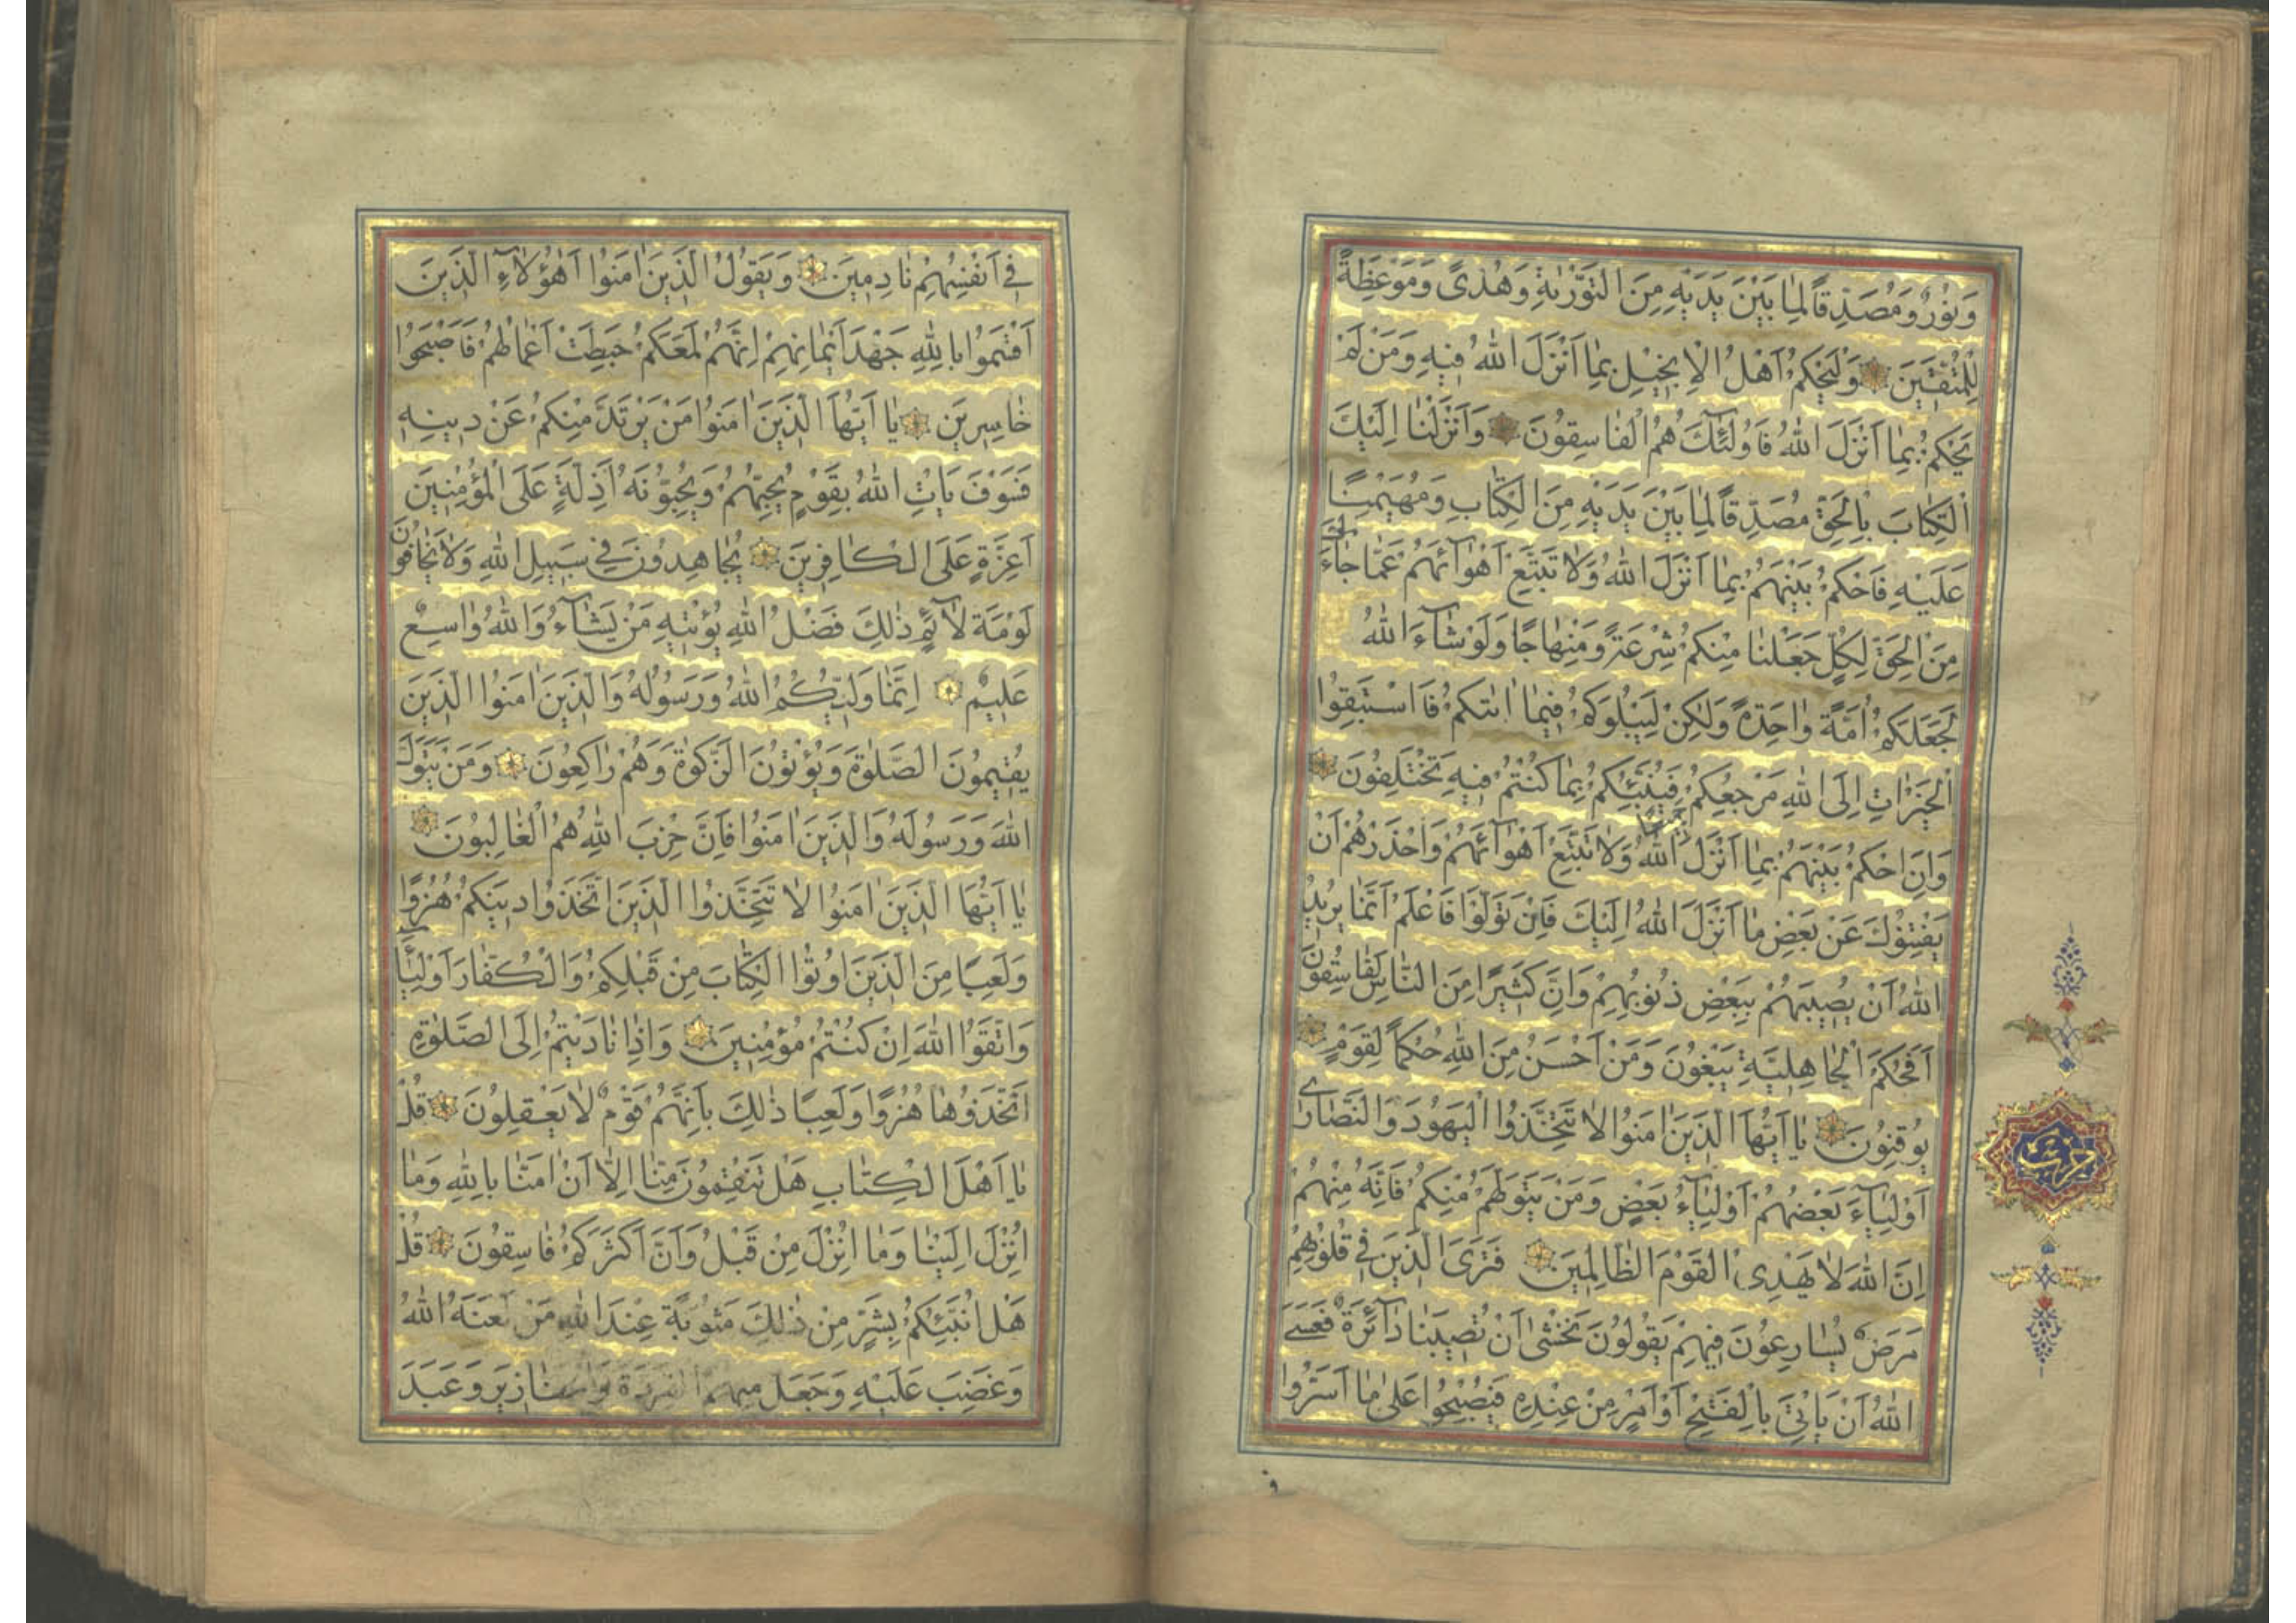 وَنُورٌ وَمُصَدِّقًا لِمَا بَيْنَ يَدَيْهِ مِنَ التَّوْرٰيةِ وَهُدًى وَمَوْعِظَةً
لِلْمُتَّقِينَ وَلْيَحْكُمْ اَهْلُ الْاِنْجِيلِ بِمَا اَنْزَلَ اللهُ فِيهِ وَمَنْ لَمْ
يَحْكُمْ بِمَا اَنْزَلَ اللهُ فَاُولٰئِكَ هُمُ الْفَاسِقُونَ وَاَنْزَلْنَا اِلَيْكَ
الْكِتَابَ بِالْحَقِّ مُصَدِّقًا لِمَا بَيْنَ يَدَيْهِ مِنَ الْكِتَابِ وَمُهَيْمِنًا
عَلَيْهِ فَاحْكُمْ بَيْنَهُمْ بِمَا اَنْزَلَ اللهُ وَلَا تَتَّبِعْ اَهْوَآئَهُمْ عَمَّا جَآءَكَ
مِنَ الْحَقِّ لِكُلٍّ جَعَلْنَا مِنْكُمْ شِرْعَةً وَمِنْهَاجًا وَلَوْ شَآءَ اللهُ
لَجَعَلَكُمْ اُمَّةً وَاحِدَةً وَلٰكِنْ لِيَبْلُوَكُمْ فِيمَا اٰتٰيكُمْ فَاسْتَبِقُوا
الْخَيْرَاتِ اِلَى اللهِ مَرْجِعُكُمْ جَمِيعًا فَيُنَبِّئُكُمْ بِمَا كُنْتُمْ فِيهِ تَخْتَلِفُونَ
وَاَنِ احْكُمْ بَيْنَهُمْ بِمَا اَنْزَلَ اللهُ وَلَا تَتَّبِعْ اَهْوَآئَهُمْ وَاحْذَرْهُمْ اَنْ
يَفْتِنُوكَ عَنْ بَعْضِ مَا اَنْزَلَ اللهُ اِلَيْكَ فَاِنْ تَوَلَّوْا فَاعْلَمْ اَنَّمَا يُرِيدُ
اللهُ اَنْ يُصِيبَهُمْ بِبَعْضِ ذُنُوبِهِمْ وَاِنَّ كَثِيرًا مِنَ النَّاسِ لَفَاسِقُونَ
اَفَحُكْمَ الْجَاهِلِيَّةِ يَبْغُونَ وَمَنْ اَحْسَنُ مِنَ اللهِ حُكْمًا لِقَوْمٍ
يُوقِنُونَ يَا اَيُّهَا الَّذِينَ اٰمَنُوا لَا تَتَّخِذُوا الْيَهُودَ وَالنَّصَارٰى
اَوْلِيَآءَ بَعْضُهُمْ اَوْلِيَآءُ بَعْضٍ وَمَنْ يَتَوَلَّهُمْ مِنْكُمْ فَاِنَّهُ مِنْهُمْ
اِنَّ اللهَ لَا يَهْدِى الْقَوْمَ الظَّالِمِينَ فَتَرَى الَّذِينَ فِى قُلُوبِهِمْ
مَرَضٌ يُسَارِعُونَ فِيهِمْ يَقُولُونَ نَخْشٰى اَنْ تُصِيبَنَا دَآئِرَةٌ فَعَسَى
اللهُ اَنْ يَاْتِيَ بِالْفَتْحِ اَوْ اَمْرٍ مِنْ عِنْدِهِ فَيُصْبِحُوا عَلٰى مَا اَسَرُّوا
فى
حزب
فِى اَنْفُسِهِمْ نَادِمِينَ وَيَقُولُ الَّذِينَ اٰمَنُوا اَهٰؤُلَآءِ الَّذِينَ
اَقْسَمُوا بِاللهِ جَهْدَ اَيْمَانِهِمْ اِنَّهُمْ لَمَعَكُمْ حَبِطَتْ اَعْمَالُهُمْ فَاَصْبَحُوا
خَاسِرِينَ يَا اَيُّهَا الَّذِينَ اٰمَنُوا مَنْ يَرْتَدَّ مِنْكُمْ عَنْ دِينِهِ
فَسَوْفَ يَاْتِى اللهُ بِقَوْمٍ يُحِبُّهُمْ وَيُحِبُّونَهُ اَذِلَّةٍ عَلَى الْمُؤْمِنِينَ
اَعِزَّةٍ عَلَى الْكَافِرِينَ يُجَاهِدُونَ فِى سَبِيلِ اللهِ وَلَا يَخَافُونَ
لَوْمَةَ لَآئِمٍ ذٰلِكَ فَضْلُ اللهِ يُؤْتِيهِ مَنْ يَشَآءُ وَاللهُ وَاسِعٌ
عَلِيمٌ اِنَّمَا وَلِيُّكُمُ اللهُ وَرَسُولُهُ وَالَّذِينَ اٰمَنُوا الَّذِينَ
يُقِيمُونَ الصَّلٰوةَ وَيُؤْتُونَ الزَّكٰوةَ وَهُمْ رَاكِعُونَ وَمَنْ يَتَوَلَّ
اللهَ وَرَسُولَهُ وَالَّذِينَ اٰمَنُوا فَاِنَّ حِزْبَ اللهِ هُمُ الْغَالِبُونَ
يَا اَيُّهَا الَّذِينَ اٰمَنُوا لَا تَتَّخِذُوا الَّذِينَ اتَّخَذُوا دِينَكُمْ هُزُوًا
وَلَعِبًا مِنَ الَّذِينَ اُوتُوا الْكِتَابَ مِنْ قَبْلِكُمْ وَالْكُفَّارَ اَوْلِيَآءَ
وَاتَّقُوا اللهَ اِنْ كُنْتُمْ مُؤْمِنِينَ وَاِذَا نَادَيْتُمْ اِلَى الصَّلٰوةِ
اتَّخَذُوهَا هُزُوًا وَلَعِبًا ذٰلِكَ بِاَنَّهُمْ قَوْمٌ لَا يَعْقِلُونَ قُلْ
يَا اَهْلَ الْكِتَابِ هَلْ تَنْقِمُونَ مِنَّا اِلَّا اَنْ اٰمَنَّا بِاللهِ وَمَا
اُنْزِلَ اِلَيْنَا وَمَا اُنْزِلَ مِنْ قَبْلُ وَاَنَّ اَكْثَرَكُمْ فَاسِقُونَ قُلْ
هَلْ اُنَبِّئُكُمْ بِشَرٍّ مِنْ ذٰلِكَ مَثُوبَةً عِنْدَ اللهِ مَنْ لَعَنَهُ اللهُ
وَغَضِبَ عَلَيْهِ وَجَعَلَ مِنْهُمُ الْقِرَدَةَ وَالْخَنَازِيرَ وَعَبَدَ